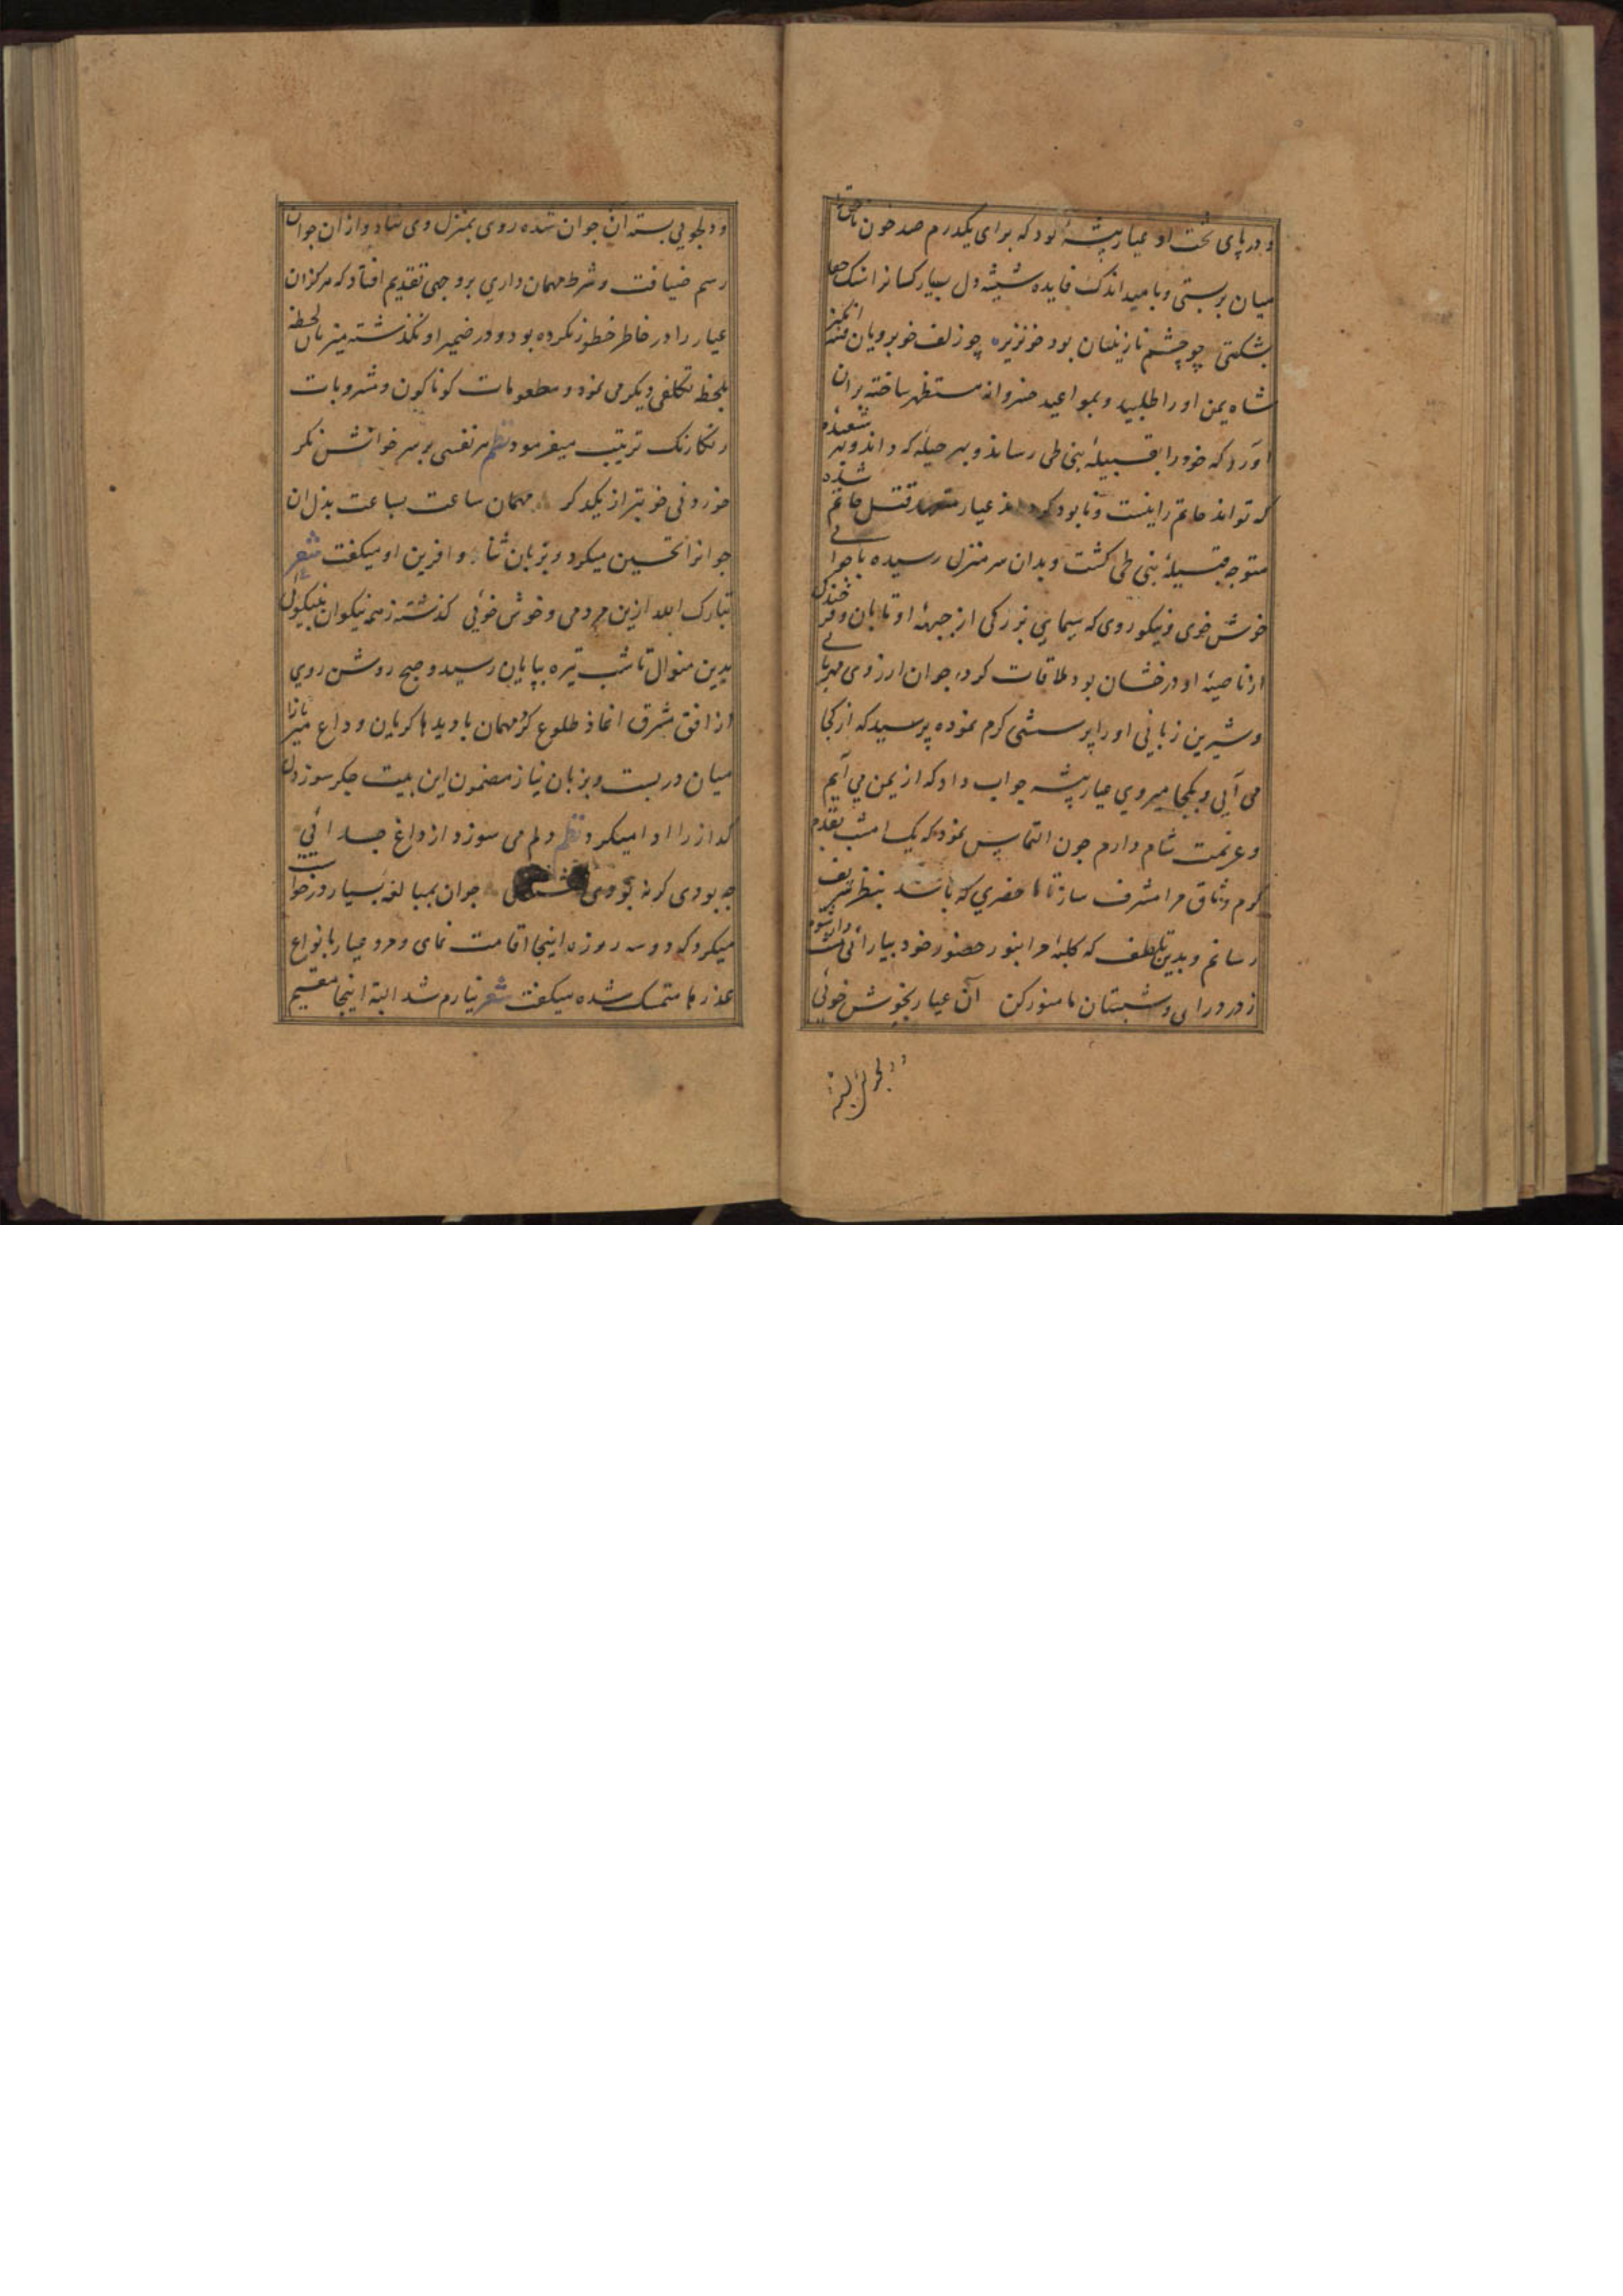 و در پای تخت او عیار پیشهٔ بود که برای یکدرم صد خون ناحق
میان بربستی و بامید اندک فایده شیشهٔ دل بسیار کسانرا بسنک جفا
بشکستی چو چشم نازنینان بود خونریزه چو زلف خوبرویان فتنه انکیز
شاه یمن او را طلبید و بمواعید خسروانه مستظهر ساخته بران
آورد که خود را بقبیلهٔ بنی طی رساند و بهر حیلهٔ که داند و بهر شعبده
که تواند حاتم را نیست و نابود کرداند عیار متعهد قتل حاتم شده
متوجه قبیلهٔ بنی طی کشت و بدان سر منزل رسیده با جوانی
خوش خوی و نیکو روی که سیمای بزرکی از جبههٔ او تابان و فر خندکی
از ناصیهٔ او درخشان بود ملاقات کرد جوان از روی مهربانی
و شیرین زبانی او را پرسشی کرم نموده پرسید که از کجا
می آیی و بکجا میروی عیار پیشه جواب داد که از یمن می آیم
و عزیمت شام دارم جون التماس نمود که یک امشب بقدم
کرم وثاق مرا مشرف ساز تا ما حضری که باشد بنظر شریف
رسانم و بدین تلطف که کلبهٔ مرا بنور حضور خود بیارائی منت دار شوم
ز در درای و شبستان ما منور کن آن عیار بخوش خوئی
و دلجویی بسته آن جوان شده روی بمنزل وی نهاد و از ان جوان
رسم ضیافت و شرط مهمان داری بر وجهی تقدیم افتاد که هرکز ان
عیار را در خاطر خطور نکرده بود و در ضمیر او نکذشته میزبان لحظه
بلحظه تکلفی دیکر می نمود و مطعومات کوناکون و مشروبات
رنکارنک ترتیب میفرمود نظم هر نفسی بر سر خوانش نکر
خوردنی خوبتر از یکدکر مهمان ساعت بساعت بذل ان
جوانرا تحسین میکرد و بزبان ثنا و افرین او میکفت شعر
تبارک الله ازین مردمی و خوش خوئی کذشته ز همه نیکوان بنیکوئی
بدین منوال تا شب تیره بپایان رسید و صبح روشن روی
از افق مشرق اغاز طلوع کرد مهمان با دیدها کریان وداع میزبانرا
میان در بست و بزبان نیاز مضمون این بیت جکر سوز دل
کداز را ادا میکرد نظم دلم می سوزد از داغ جدائی
چه بودی کر نه بودی جوان بمبالغه بسیار درخواست
میکرد که دو سه روزه اینجا اقامت نمای و مرد عیار بانواع
عذرها متمسک شده میکفت شعر نیارم شد البته اینجا مقیم